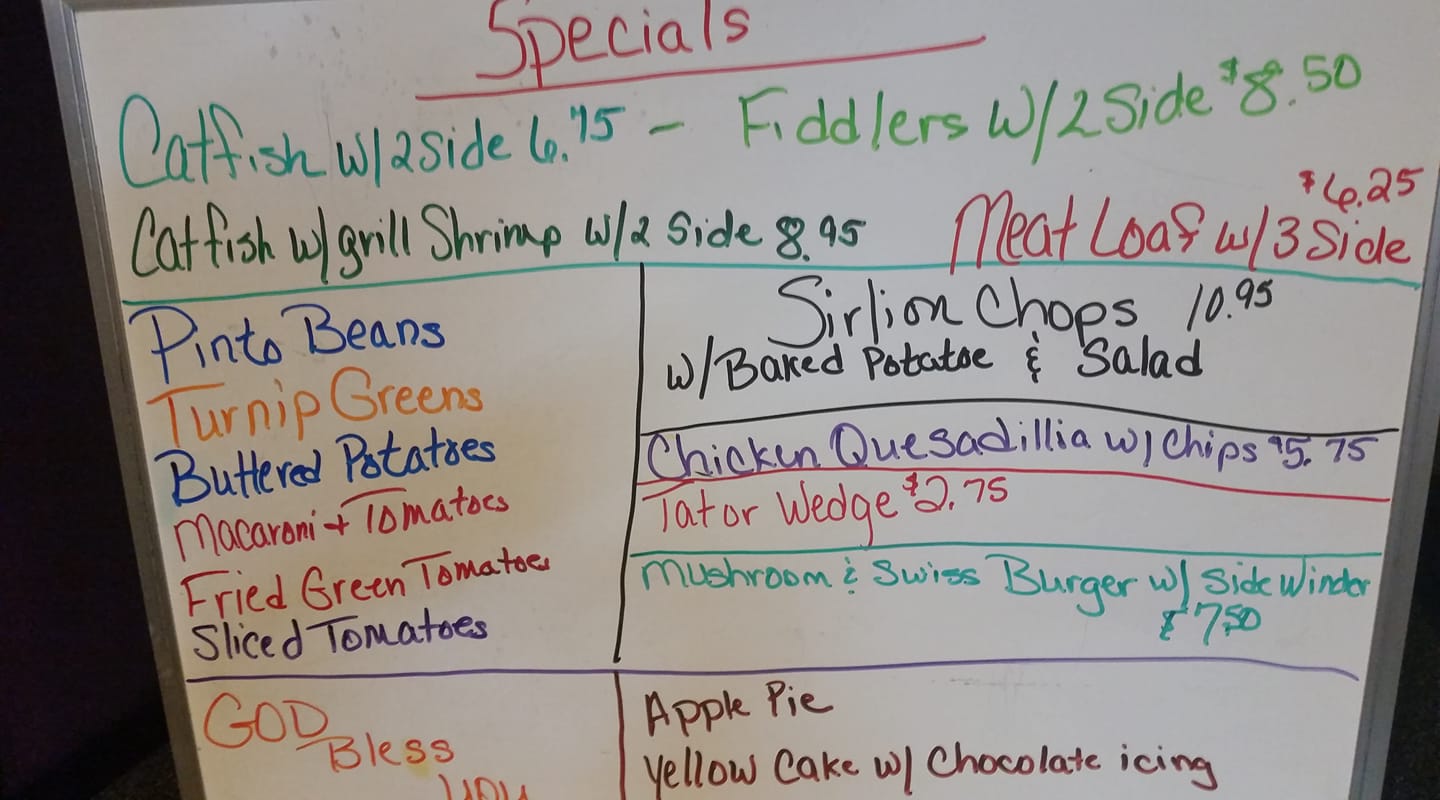 Specials
Catfish w/2 Side 6.75 - Fiddlers w/2 Side $8.50
Catfish w/grill Shrimp w/2 Side 8.95
Meat Loaf w/3 Side $6.25
Pinto Beans
Turnip Greens
Buttered Potatoes
Macaroni + Tomatoes
Fried Green Tomatoes
Sliced Tomatoes
Sirlion Chops 10.95
w/Baked Potatoe & Salad
Chicken Quesadillia w/Chips $5.75
Tator Wedge $2.75
Mushroom & Swiss Burger w/ Side Winder
$7.50
GOD
Bless
you
Apple Pie
Yellow Cake w/ Chocolate icing